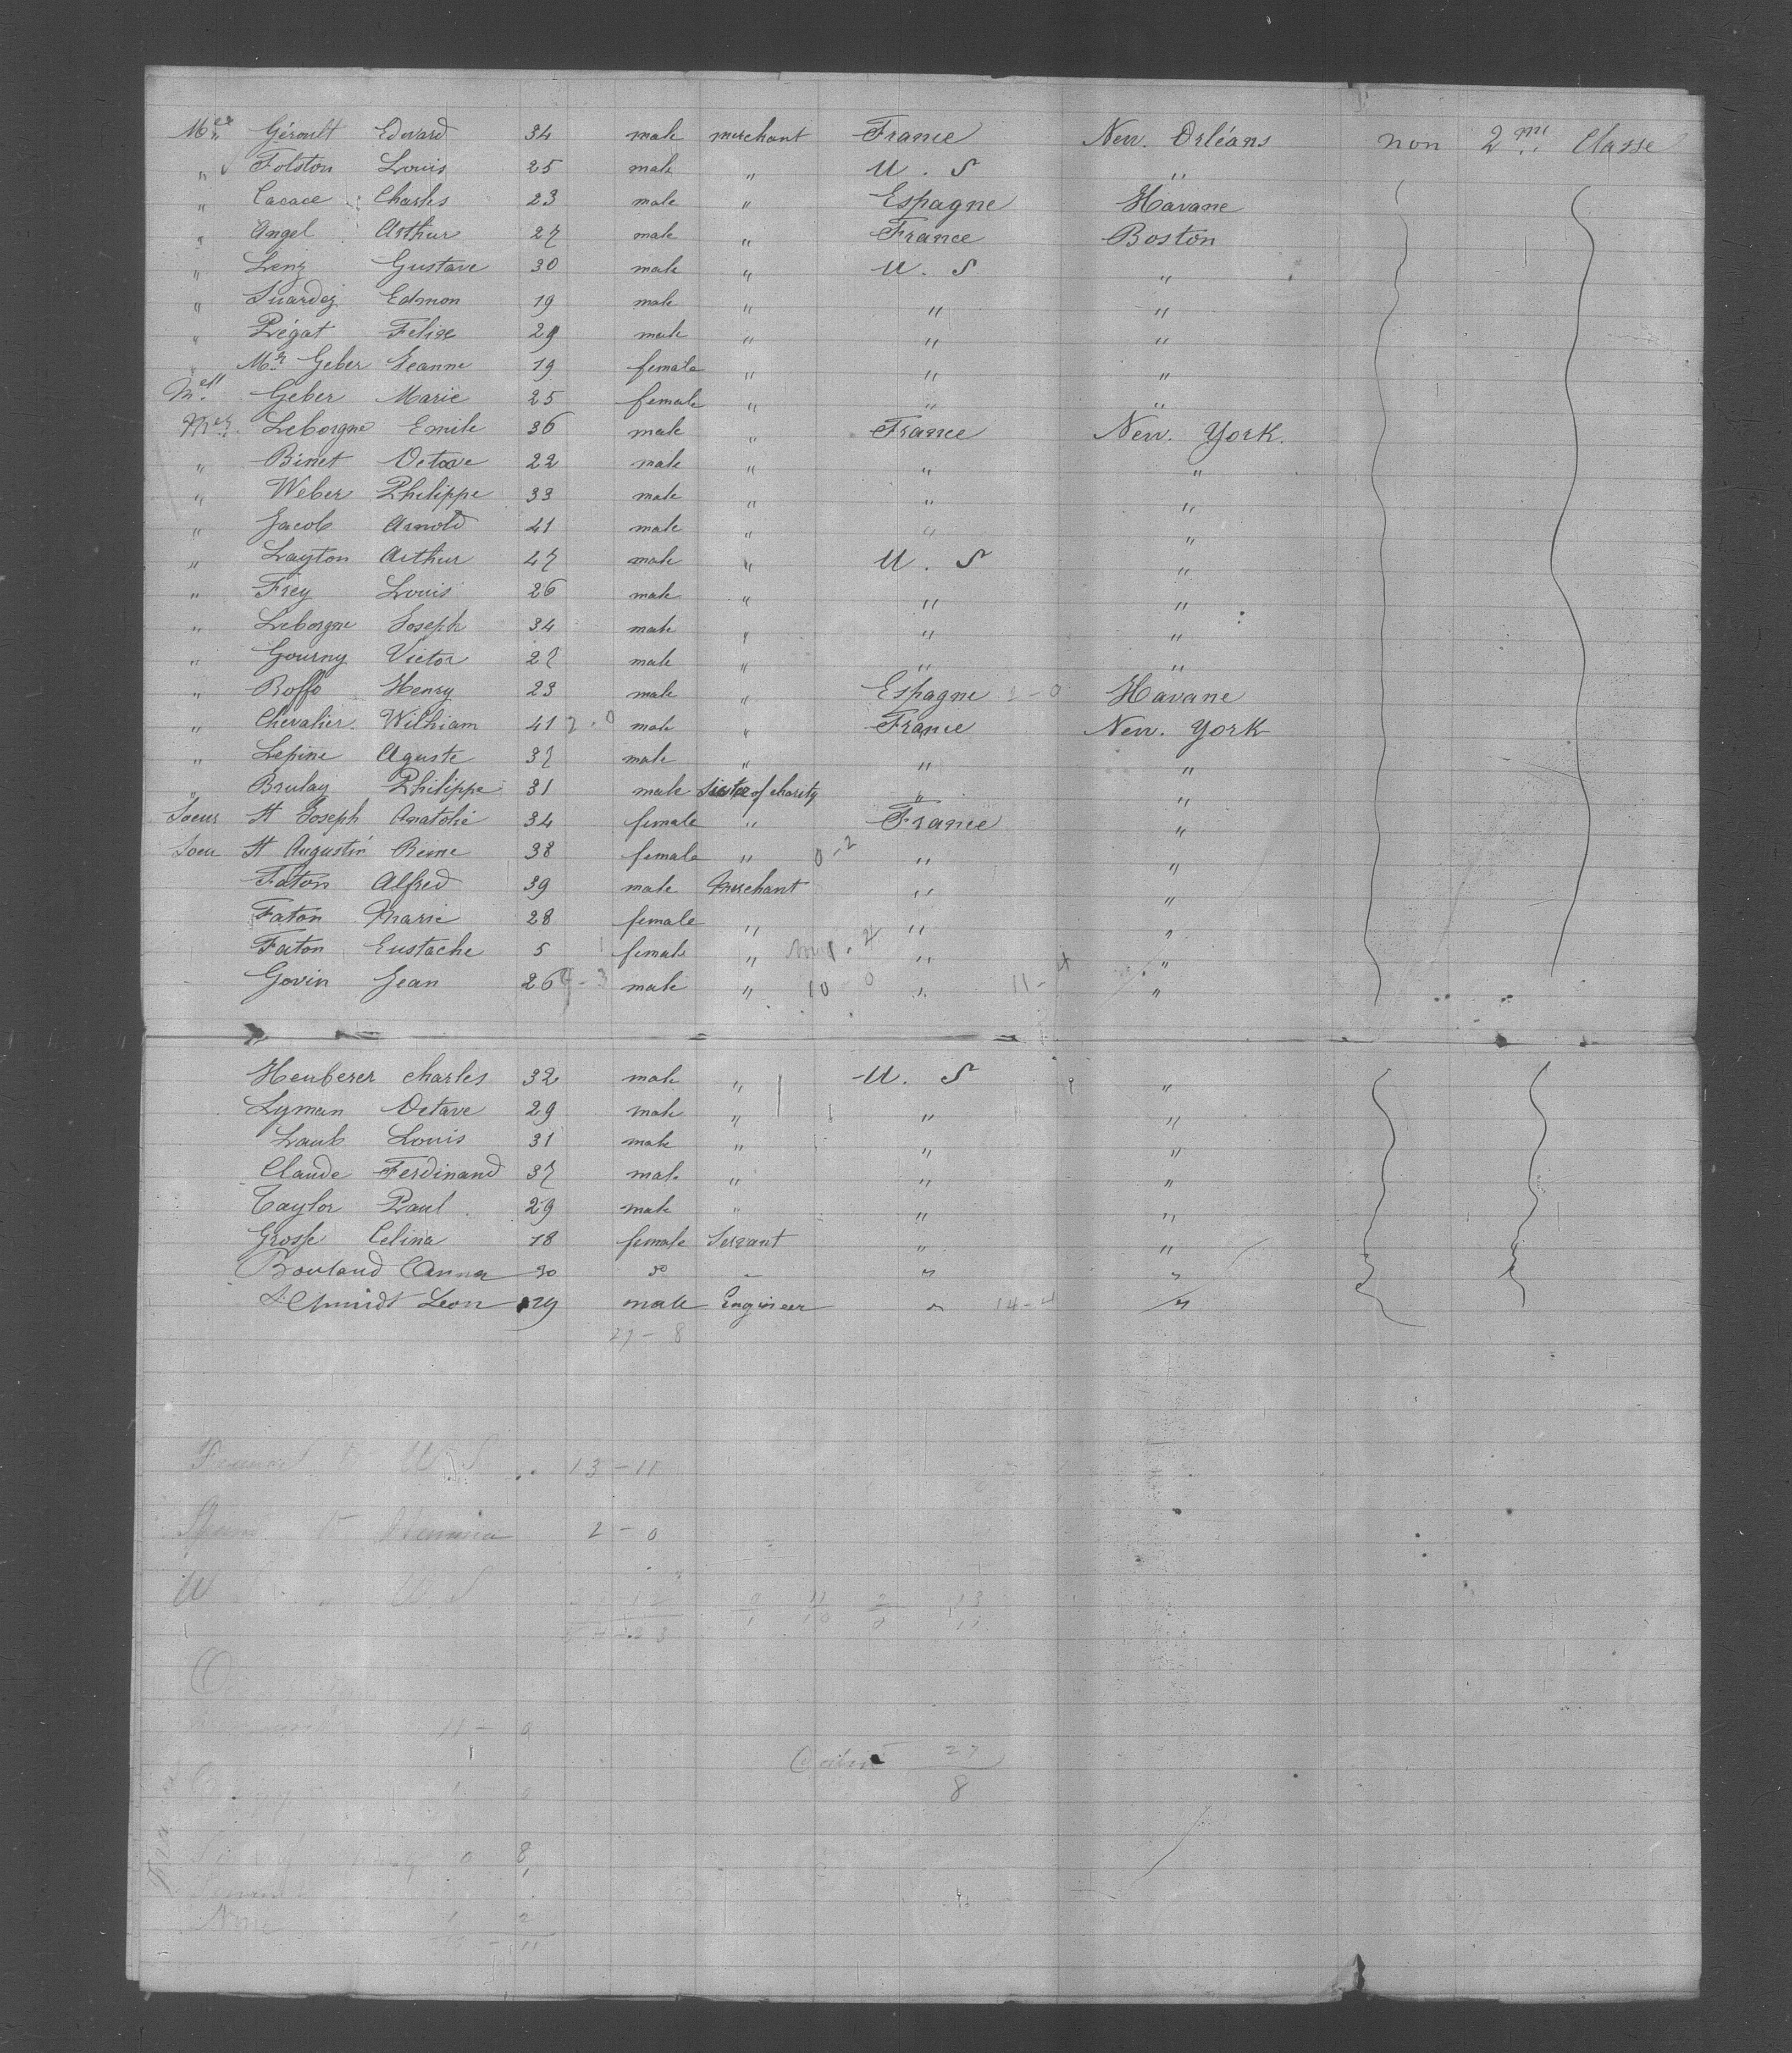 Mer Géroult Edward 34 male merchant France New. Orléans non 2me Classe
" Folston Louis 25 male " U. S "
" Cacace Charles 23 male " Espagne Havane
" Angel Arthur 27 male " France Boston
" Lenz Gustave 30 male " U. S "
" Suardez Edmon 19 male " " "
" Légat Felixe 29 male " " "
" Mr Geber Jeanne 19 female " " "
Mell Geber Marie 25 female " " "
Mer Leborgne Emile 36 male " France New. York.
" Binet Octave 22 male " " "
" Weber Philippe 33 male " " "
" Jacob Arnold 41 male " " "
" Layton Arthur 47 male " U. S "
" Frey Louis 26 male " " "
" Leborgne Joseph 34 male " " "
" Gourny Victor 27 male " " "
" Roffo Henry 23 male " Espagne 2-0 Havane
" Chevalier. Wilhiam 41 2.0 male " France New. York
" Lepine Aguste 37 male " " "
" Brulay Philippe 31 male Sister of charity " "
Soeur St Joseph Anatolie 34 female " France "
Soeu St Augustin Reine 38 female " 0-2 " "
Faton Alfred 39 male Merchant " "
Faton Marie 28 female " " "
Faton Eustache 5 female " " "
Govin Jean 26 male " 10 0 " 11-4 "
Heuberer Charles 32 male " U. S "
Lyman Octave 29 male " " "
Laub Louis 31 male " " "
Claude Ferdinand 37 male " " "
Taylor Paul 29 male " " "
Grosse Celina 18 female Servant " "
Bouland Anna 30 do " " "
Schmidt Leon 29 male Engineer " 14-4 "
27-8
France to U S 13-11
2-0
U S U S
11-0
27
8